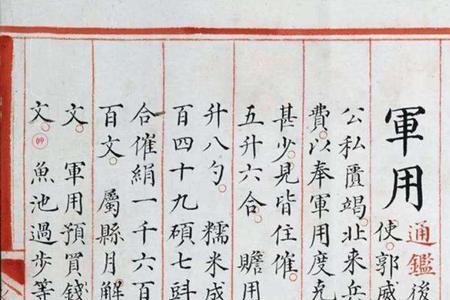 軍用
通鑑後
使郭威
公私匱竭北来兵
費以奉軍用度克
甚少見皆住催
五升六合 贍用
升八勺 糯米成
百四十九碩七㪷
合催絹一千六百
百文 屬縣月解
文 軍用預買錢
文 魚池過步等